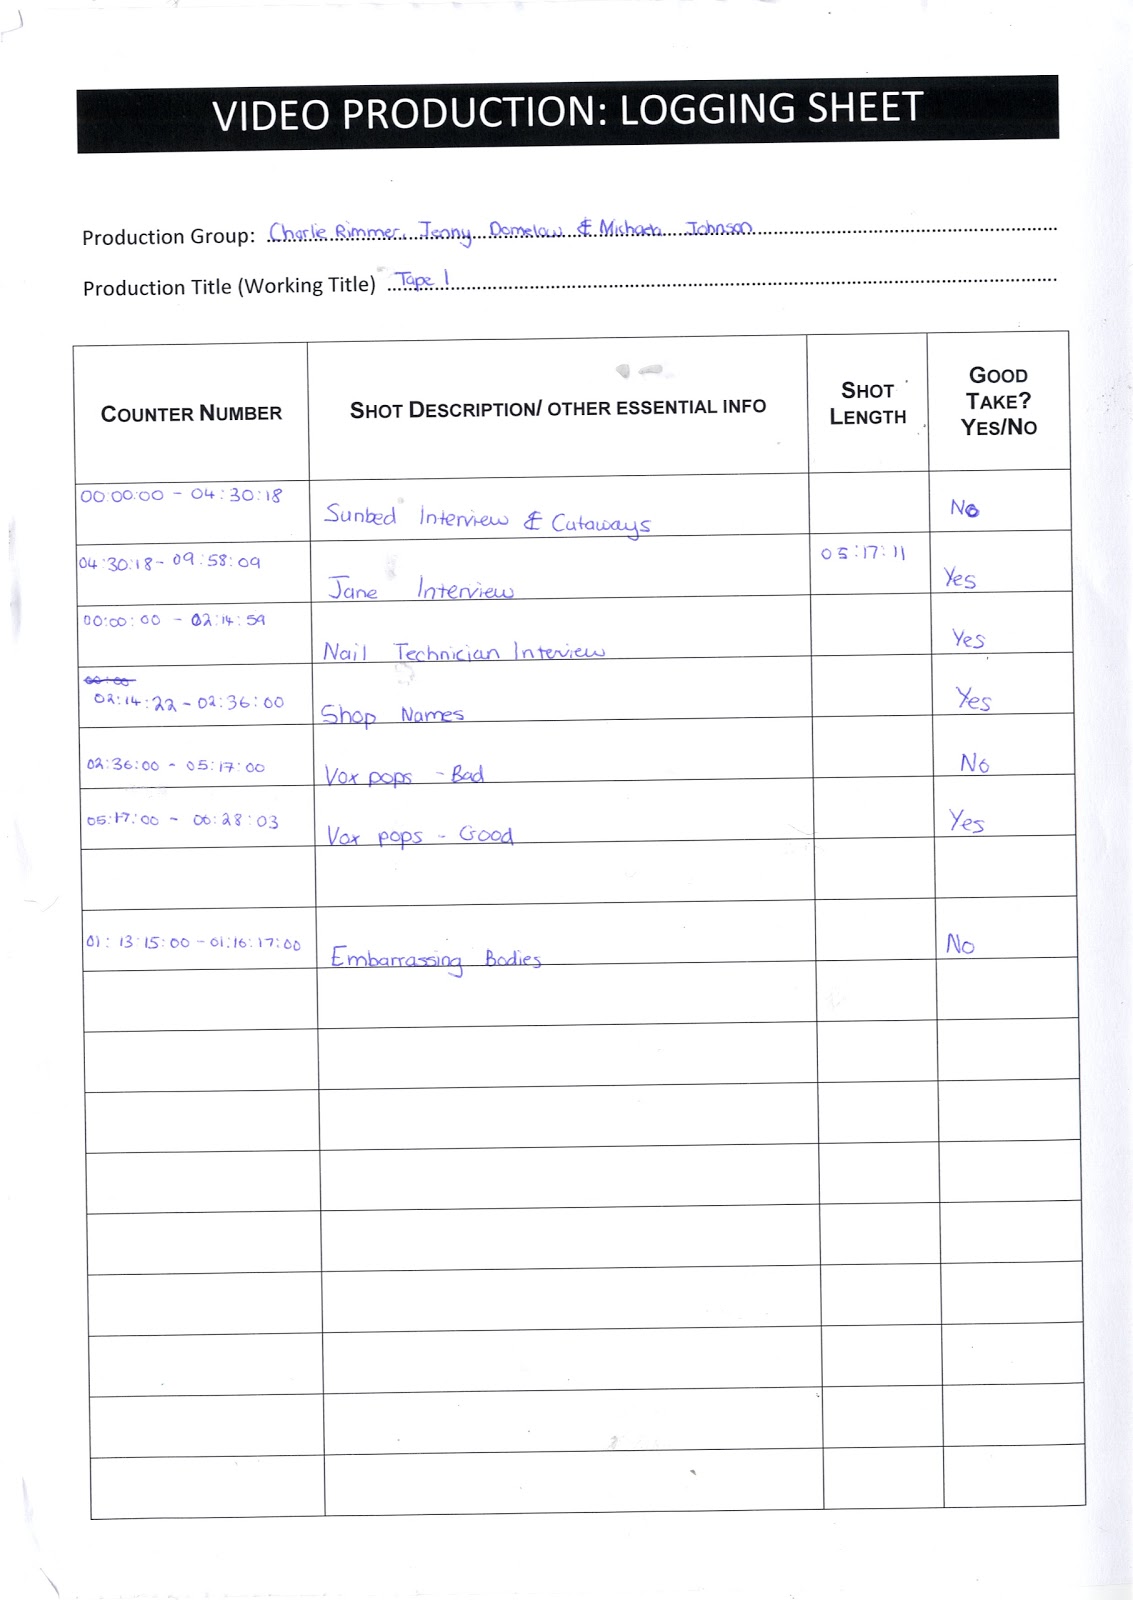 VIDEO PRODUCTION: LOGGING SHEET
Production Group: Charlie Rimmer, Jenny Domelow & Michaela Johnson
Production Title (Working Title) Tape 1
COUNTER NUMBER SHOT DESCRIPTION/ OTHER ESSENTIAL INFO SHOT LENGTH GOOD TAKE? YES/NO
00:00:00 - 04:30:18 Sunbed Interview & Cutaways No
04:30:18 - 09:58:09 Jane Interview 05:17:11 Yes
00:00:00 - 02:14:59 Nail Technician Interview Yes
00:00
02:14:22 - 02:36:00 Shop Names Yes
02:36:00 - 05:17:00 Vox pops - Bad No
05:17:00 - 06:28:03 Vox pops - Good Yes
01:13:15:00 - 01:16:17:00 Embarrassing Bodies No